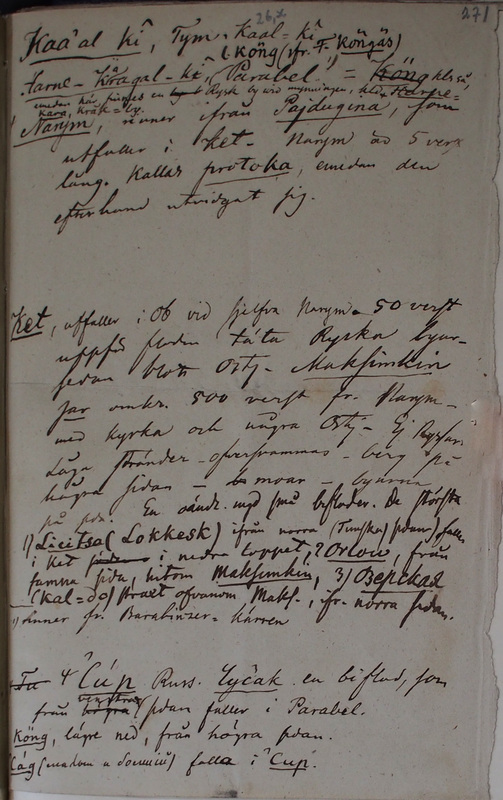 26,
271
Kaa'al kî, Tym. Kaal-kî
(. Köng (ifr. F. Köngäs)
Karne-Krägal-kî, Parabel = Köng
emedan här finnes en Rysk by vid mynningen
Kara, Kräk = by.
Narym, rinner ifrån Pajdugina, som
utfaller i Ket. Narym är 5 verst
lång. Kallas protoka, emedan den
efterhand utvidgat sig.
Ket, utfaller i Ob vid sjelfva Narym. 50 verst
uppför floden täta Ryska byar
sedan blott Ostj. Maksimkin
jar omkr. 500 verst fr. Narym
med kyrka och några Ostj. Ej Ryssar
Låga stränder - öfversvammas - berg på
högra sidan - moar - byarna
på sidan. En oändl. mgd små bifloder. De största
1) Licitsa (Lokkesk) ifrån norra (Timska) sidan) faller
i Ket i nedra loppet, 2 Orlow, från
samma sida, hitom Maksimkin, 3)
(Kal=do) straxt ofvanom Maks., ifr. norra sidan.
1) rinner fr. Barabinzer-Kärren
4 Cúp Russ. Čyčak en biflod, som
från venstra sidan faller i Parabel.
Köng, lägre ned, från högra sidan.
falla i Cúp.